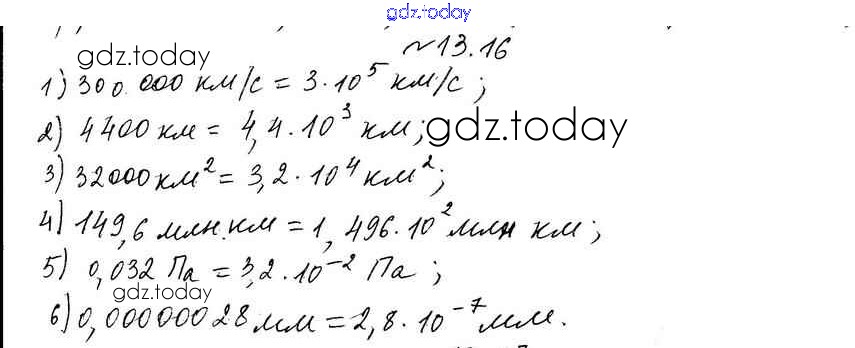 gdz.today
gdz.today
~13.16
1) 300 000 км/с = 3·10⁵ км/с;
2) 4400 км = 4,4·10³ км;
gdz.today
3) 32000 км² = 3,2·10⁴ км²;
4) 149,6 млн. км = 1,496·10² млн км;
5) 0,032 Па = 3,2·10⁻² Па;
gdz.today
6) 0,00000028 мм = 2,8·10⁻⁷ мм.